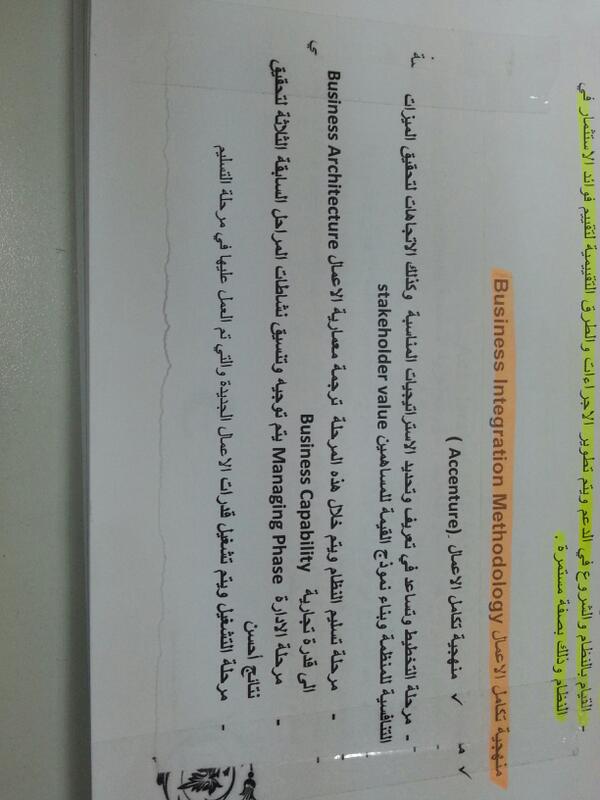 - القيام بالنظام والشروع في الدعم ويتم تطوير الاجراءات والطرق التقييمية لتقييم فوائد الاستثمار في
النظام وذلك بصفة مستمرة .
منهجية تكامل الاعمال Business Integration Methodology
✓ منهجية تكامل الاعمال .(Accenture )
- مرحلة التخطيط وتساعد في تعريف وتحديد الاستراتيجيات المناسبة وكذلك الاتجاهات لتحقيق الميزات
التنافسية للمنظمة وبناء نموذج القيمة للمساهمين stakeholder value
- مرحلة تسليم النظام ويتم خلال هذه المرحلة ترجمة معمارية الاعمال Business Architecture
الى قدرة تجارية Business Capability
- مرحلة الادارة Managing Phase يتم توجيه وتنسيق نشاطات المراحل السابقة الثلاثة لتحقيق
نتائج أحسن
- مرحلة التشغيل ويتم تشغيل قدرات الاعمال الجديدة والتي تم العمل عليها في مرحلة التسليم